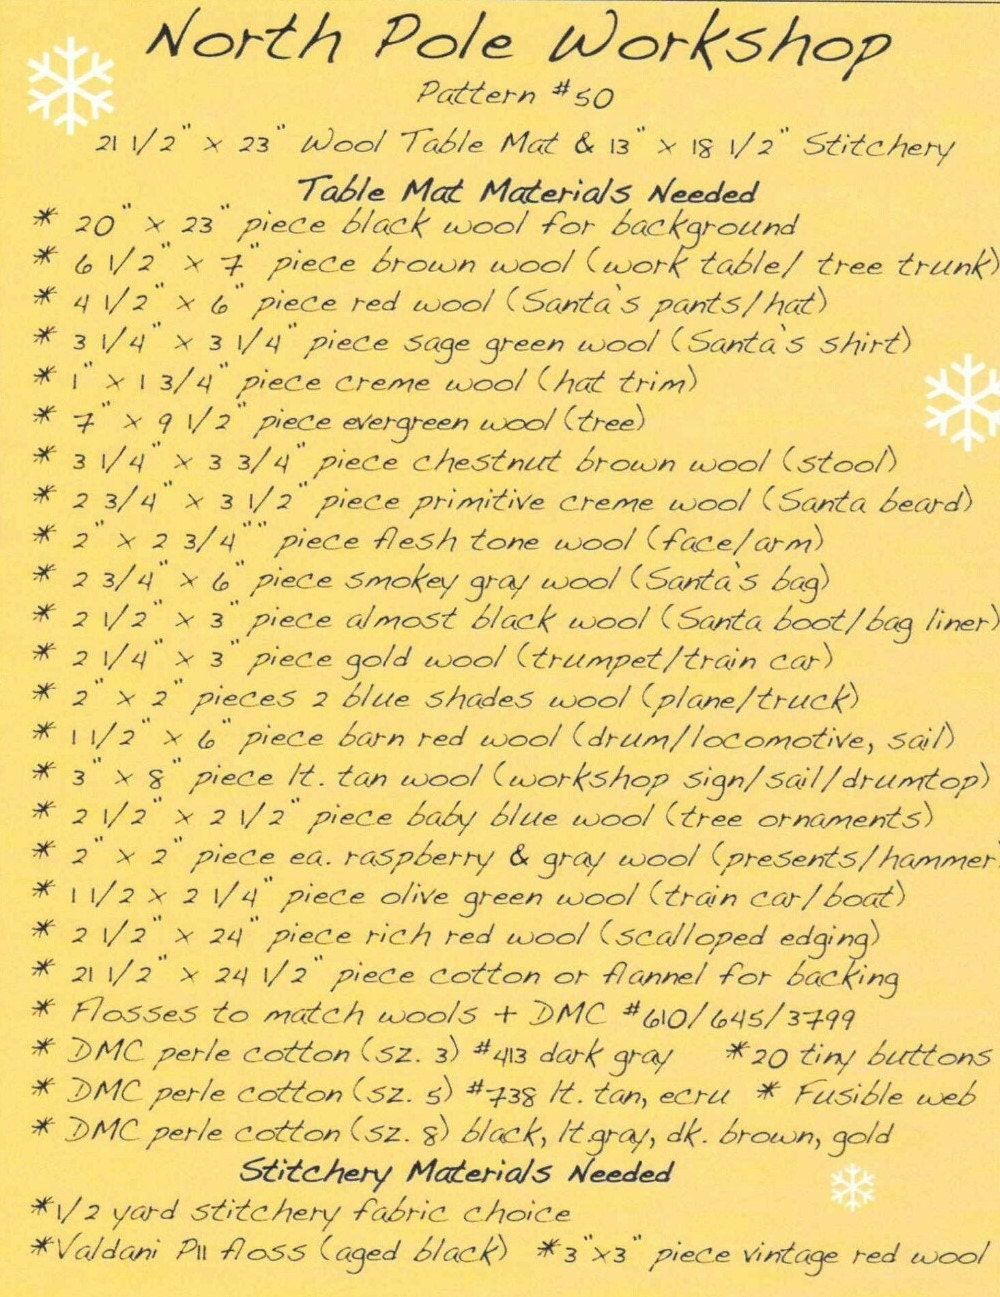 North Pole Workshop
Pattern #50
21 1/2" x 23" Wool Table Mat & 13" x 18 1/2" Stitchery
Table Mat Materials Needed
* 20" x 23" piece black wool for background
* 6 1/2" x 7" piece brown wool (work table/ tree trunk)
* 4 1/2" x 6" piece red wool (Santa's pants/hat)
* 3 1/4" x 3 1/4" piece sage green wool (Santa's shirt)
* 1" x 1 3/4" piece creme wool (hat trim)
* 7" x 9 1/2" piece evergreen wool (tree)
* 3 1/4" x 3 3/4" piece chestnut brown wool (stool)
* 2 3/4" x 3 1/2" piece primitive creme wool (Santa beard)
* 2" x 2 3/4"" piece flesh tone wool (face/arm)
* 2 3/4" x 6" piece smokey gray wool (Santa's bag)
* 2 1/2" x 3" piece almost black wool (Santa boot/bag liner)
* 2 1/4" x 3" piece gold wool (trumpet/train car)
* 2" x 2" pieces 2 blue shades wool (plane/truck)
* 1 1/2" x 6" piece barn red wool (drum/locomotive, sail)
* 3" x 8" piece lt. tan wool (workshop sign/sail/drumtop)
* 2 1/2" x 2 1/2" piece baby blue wool (tree ornaments)
* 2" x 2" piece ea. raspberry & gray wool (presents/hammer)
* 1 1/2 x 2 1/4" piece olive green wool (train car/boat)
* 2 1/2" x 24" piece rich red wool (scalloped edging)
* 21 1/2" x 24 1/2" piece cotton or flannel for backing
* Flosses to match wools + DMC #610/645/3799
* DMC perle cotton (sz. 3) #413 dark gray *20 tiny buttons
* DMC perle cotton (sz. 5) #738 lt. tan, ecru * Fusible web
* DMC perle cotton (sz. 8) black, lt.gray, dk. brown, gold
Stitchery Materials Needed
*1/2 yard stitchery fabric choice
*Valdani P11 floss (aged black) *3"x3" piece vintage red wool